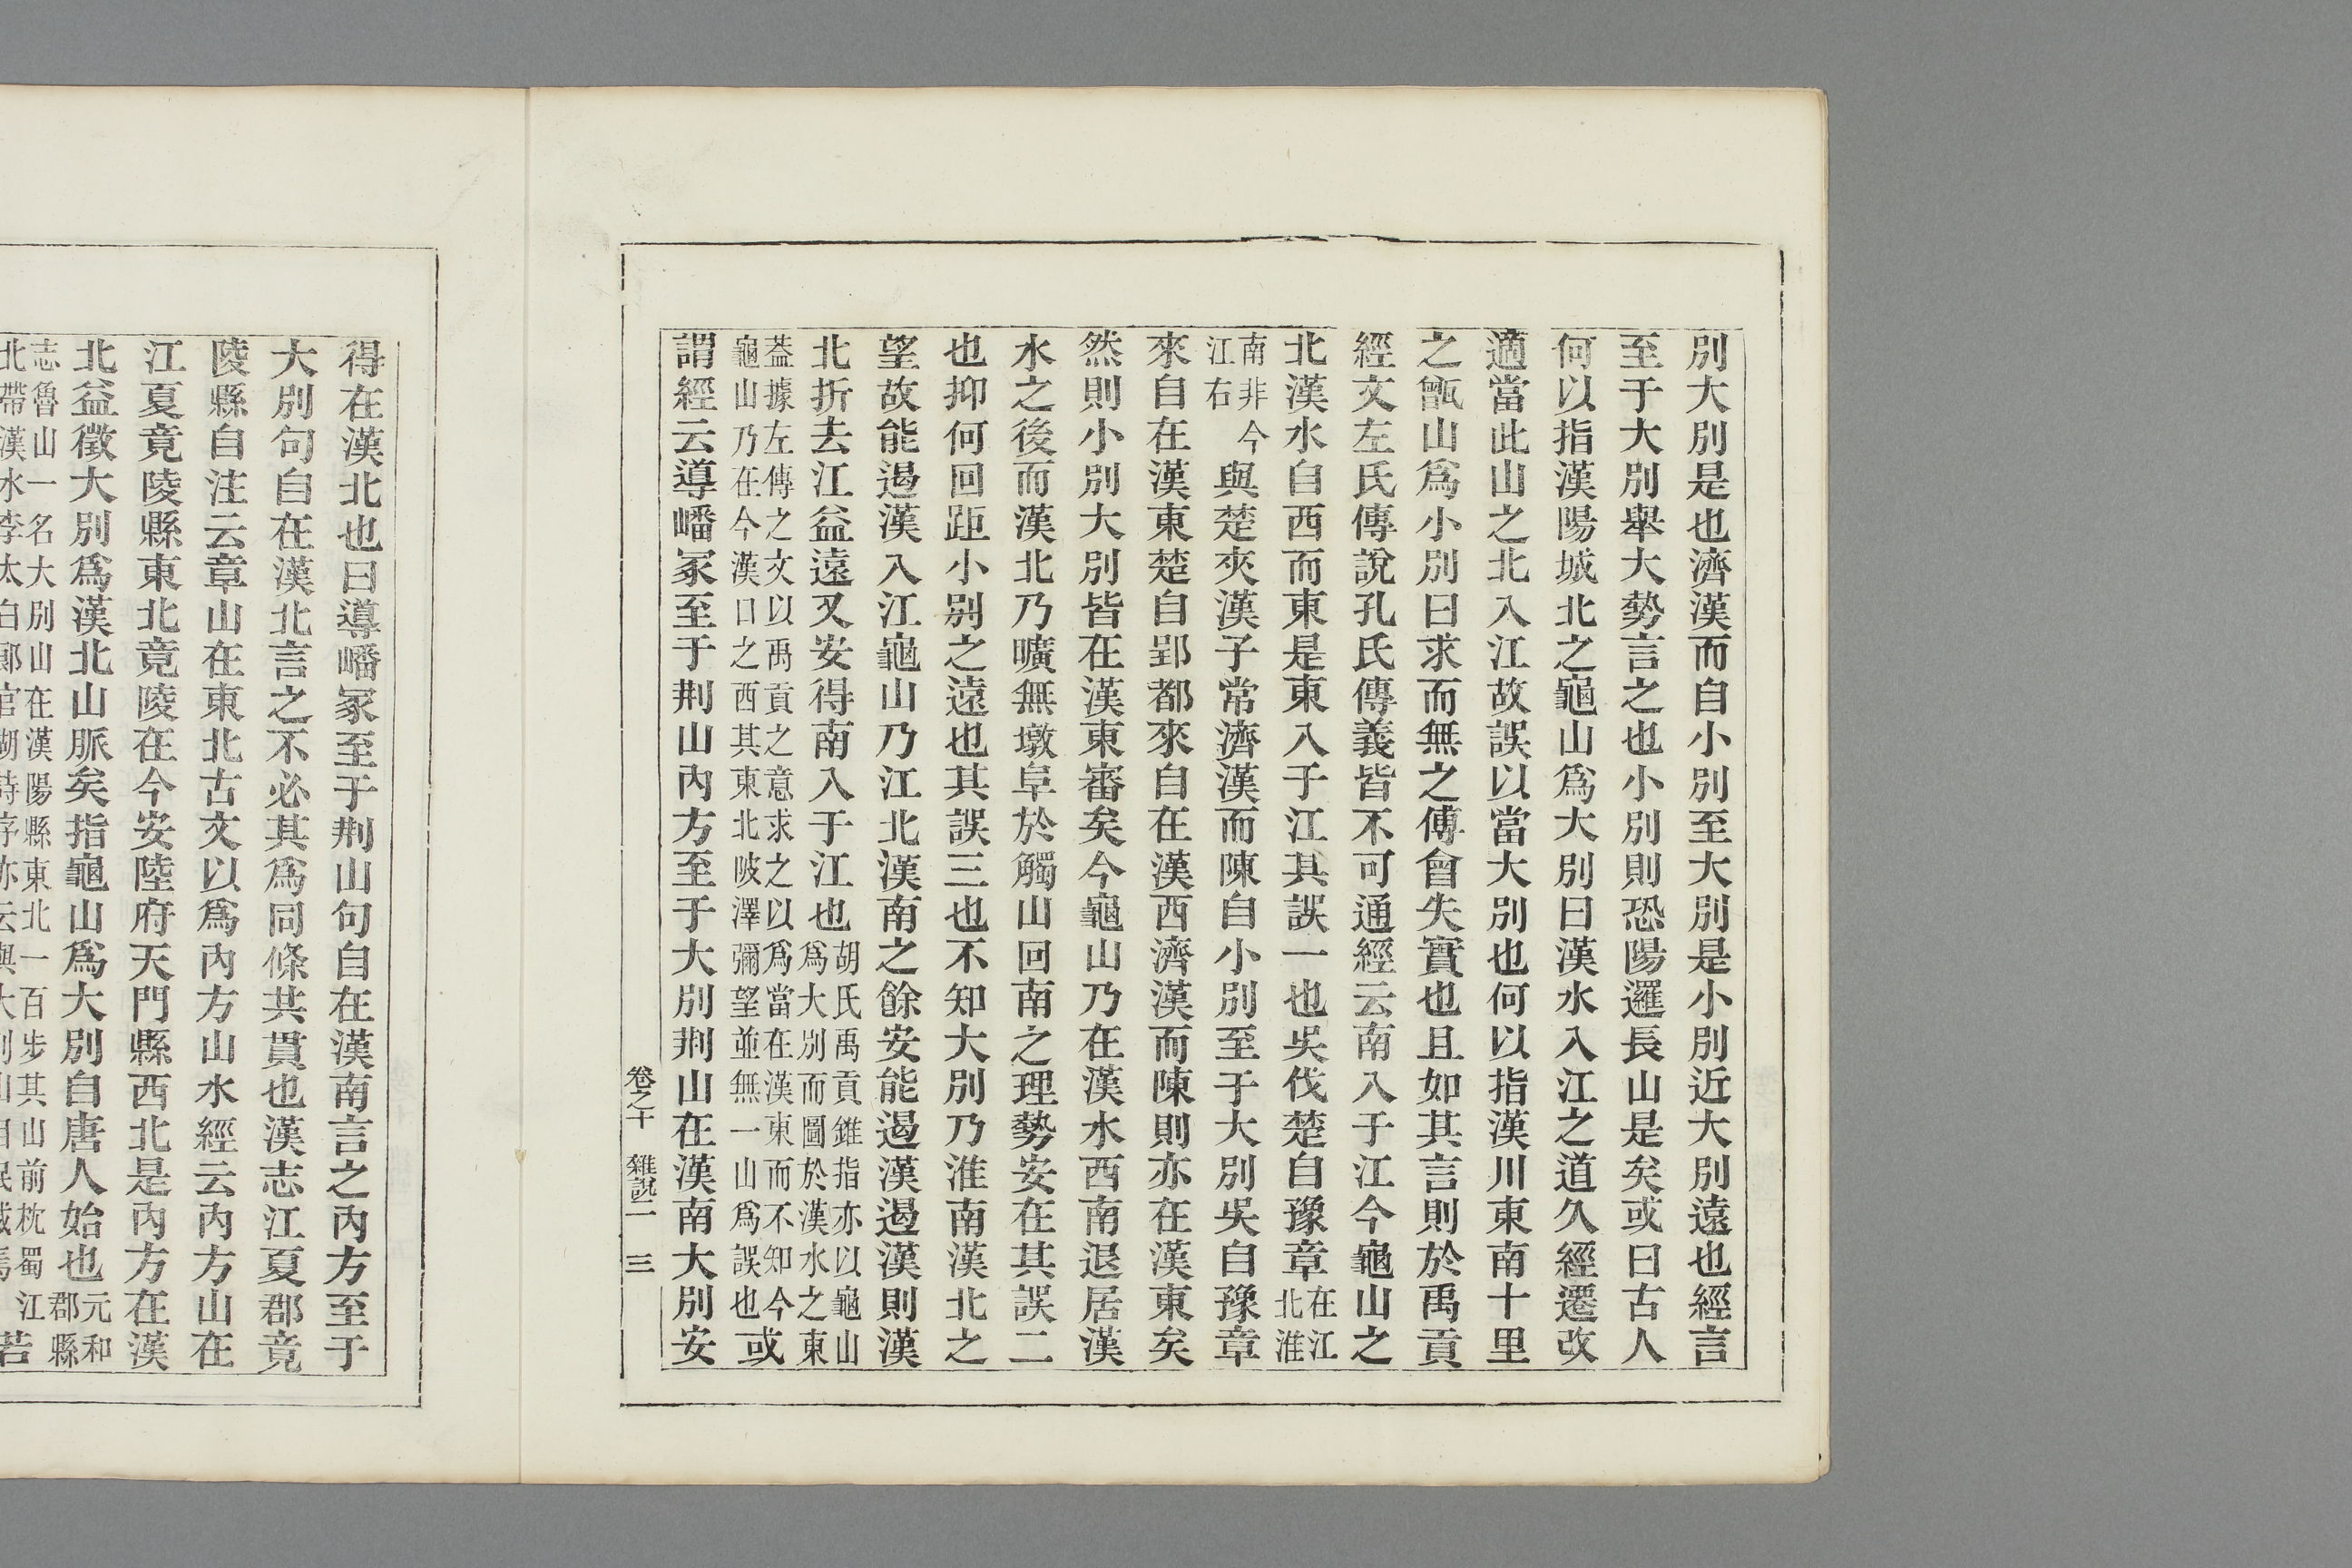 別大別是也濟漢而自小別至大別是小別近大別遠也經言
至于大別舉大勢言之也小別則恐陽邏長山是矣或曰古人
何以指漢陽城北之龜山爲大別曰漢水入江之道久經遷改
適當此山之北入江故誤以當大別也何以指漢川東南十里
之甑山爲小別曰求而無之傅會失實也且如其言則於禹貢
經文左氏傳說孔氏傳義皆不可通經云南入于江今龜山之
北漢水自西而東是東入于江其誤一也吳伐楚自豫章在江北淮
南非今江右與楚夾漢子常濟漢而陳自小別至于大別吳自豫章
來自在漢東楚自郢都來自在漢西濟漢而陳則亦在漢東矣
然則小別大別皆在漢東審矣今龜山乃在漢水西南退居漢
水之後而漢北乃曠無墩阜於觸山回南之理勢安在其誤二
也抑何回距小別之遠也其誤三也不知大別乃淮南漢北之
望故能遏漢入江龜山乃江北漢南之餘安能遏漢遏漢則漢
北折去江益遠又安得南入于江也胡氏禹貢錐指亦以龜山爲大別而圖於漢水之東
葢據左傳之文以禹貢之意求之以爲當在漢東而不知今龜山乃在今漢口之西其東北陂澤彌望並無一山爲誤也或
謂經云導嶓冢至于荆山內方至于大別荆山在漢南大別安
卷之十 雜說二 三
得在漢北也曰導嶓冢至于荆山句自在漢南言之內方至于
大別句自在漢北言之不必其爲同條共貫也漢志江夏郡竟
陵縣自注云章山在東北古文以爲內方山水經云內方山在
江夏竟陵縣東北竟陵在今安陸府天門縣西北是內方在漢
北益徵大別爲漢北山脈矣指龜山爲大別自唐人始也元和郡縣
志魯山一名大別山在漢陽縣東北一百步其山前枕蜀江北帶漢水李太白郎官湖詩序亦云與大別山